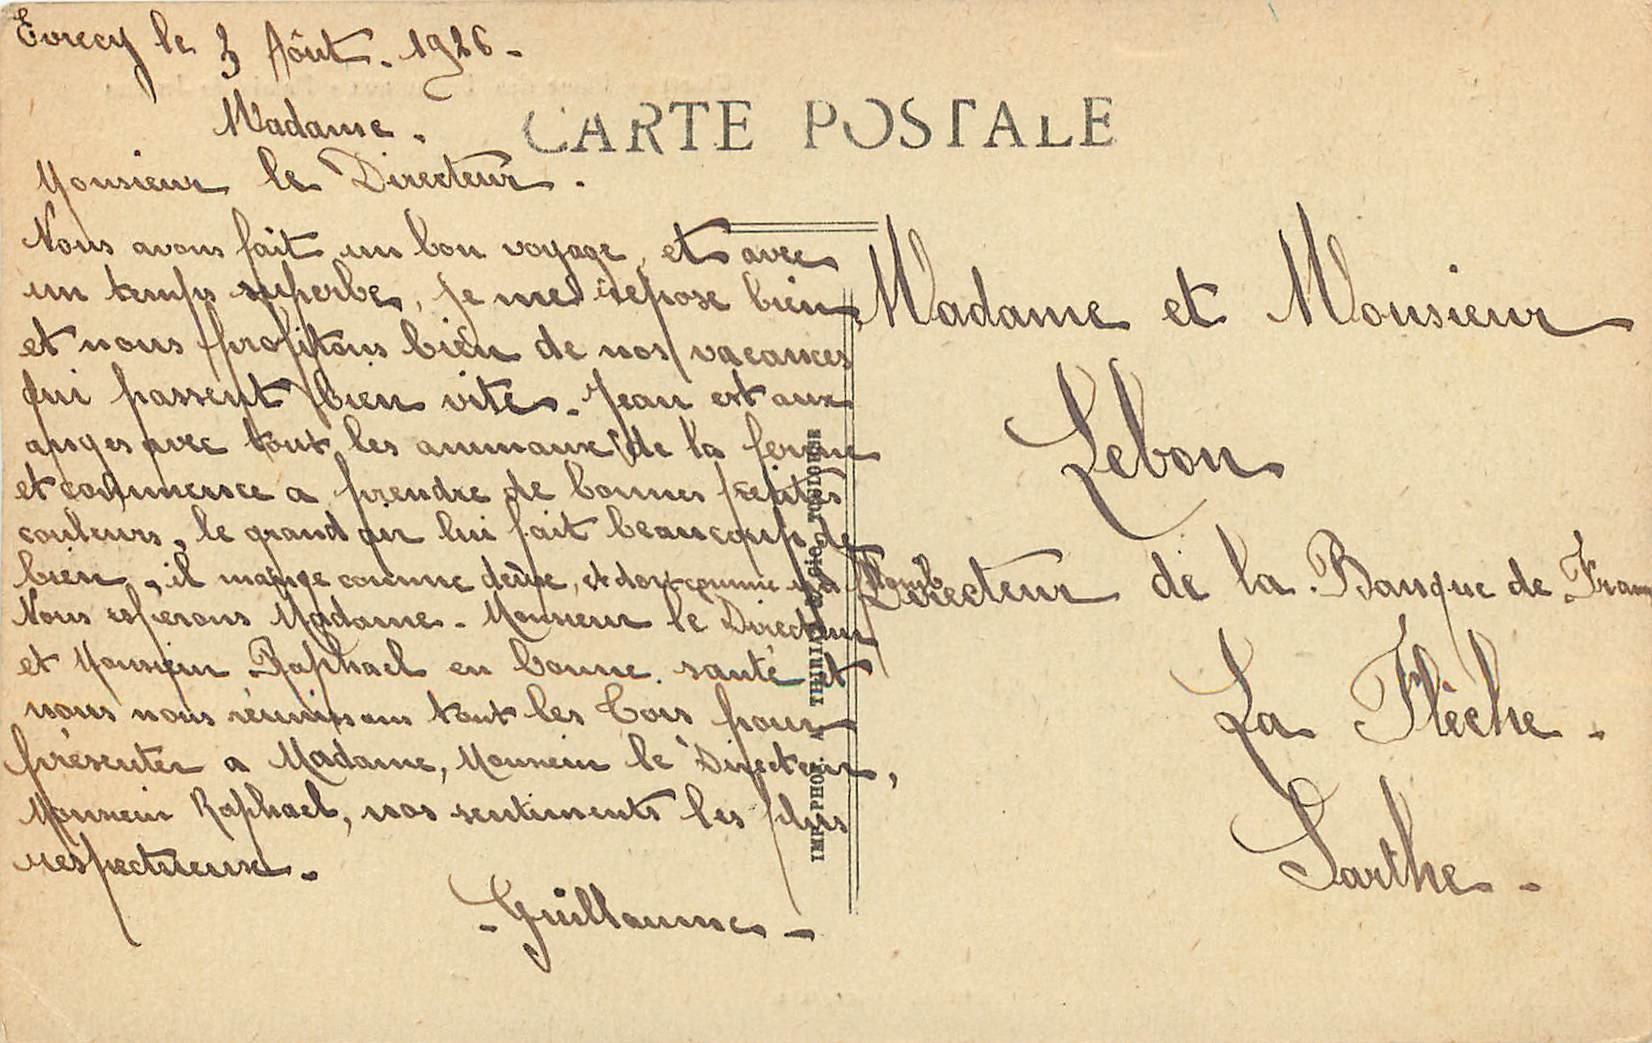 Evrecy le 3 Août. 1926.
Madame.
Monsieur le Directeur.
Nous avons fait un bon voyage, et avec
un temps superbe, je me repose bien
et nous profitons bien de nos vacances
qui passent bien vite. Jean est aux
anges avec tout les animaux de la ferme
et commence a prendre de bonnes petites
couleurs, le grand air lui fait beaucoup de
bien, il mange comme deux, et dort comme un
Nous esperons Madame. Monsieur le Directeur
et Monsieur Raphael en bonne santé et
nous nous réunissons tout les trois pour
présenter a Madame, Monsieur le Directeur,
Monsieur Raphael, nos sentiments les plus
respectueux.
- Guillaume -
CARTE POSTALE
Madame et Monsieur
Lebon
Directeur de la Banque de France
La Flèche.
Sarthe.
IMP. PHOT. A. THIRIAT & Cie TOULOUSE